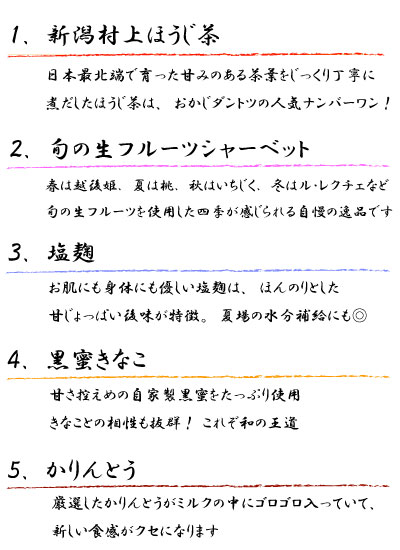 1、新潟村上ほうじ茶
日本最北端で育った甘みのある茶葉をじっくり丁寧に
煮だしたほうじ茶は、おかじダントツの人気ナンバーワン！
2、旬の生フルーツシャーベット
春は越後姫、夏は桃、秋はいちじく、冬はル・レクチェなど
旬の生フルーツを使用した四季が感じられる自慢の逸品です
3、塩麹
お肌にも身体にも優しい塩麹は、ほんのりとした
甘じょっぱい後味が特徴。夏場の水分補給にも◎
4、黒蜜きなこ
甘さ控えめの自家製黒蜜をたっぷり使用
きなことの相性も抜群！これぞ和の王道
5、かりんとう
厳選したかりんとうがミルクの中にゴロゴロ入っていて、
新しい食感がクセになります